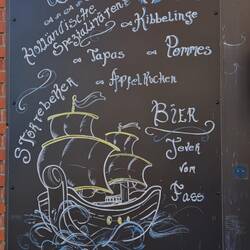 Holländische
Spezialitäten
Kibbelinge
Tapas
Pommes
Apfelkuchen
Störtebeker
Bier
Jever vom
Fass